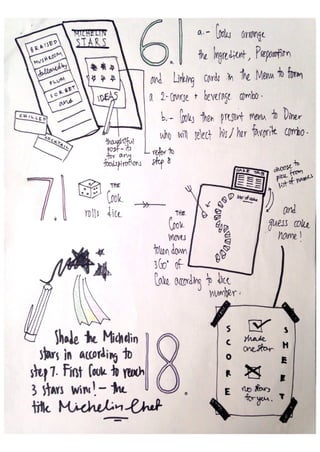 BRAISED
MUSHROOM
followed by
PLUM
SORBET
and
CHILLED
COCKTAIL
MICHELIN
STARS
IDEAS
thoughtful
post-its
for any
food spirations
refer to
step 8
6.1
a.- Cooks arrange
the Ingredient, Preparation
and Linking cards in the Menu to form
a 2-course + beverage combo.
b.- Cooks then present menu to Diner
who will select his/her favorite combo.
7.1
THE
Cook
rolls dice
THE
Cook
moves
token down
360° of
Cake according to dice
number.
choose to
pick from
list of names
and
guess cake
name!
Shade the Michelin
stars in according to
step 7. First Cook to reach
3 stars wins! - the
title Michelin-Chef
18.
SCORE
shade
one star
no stars
to you.
SHEET